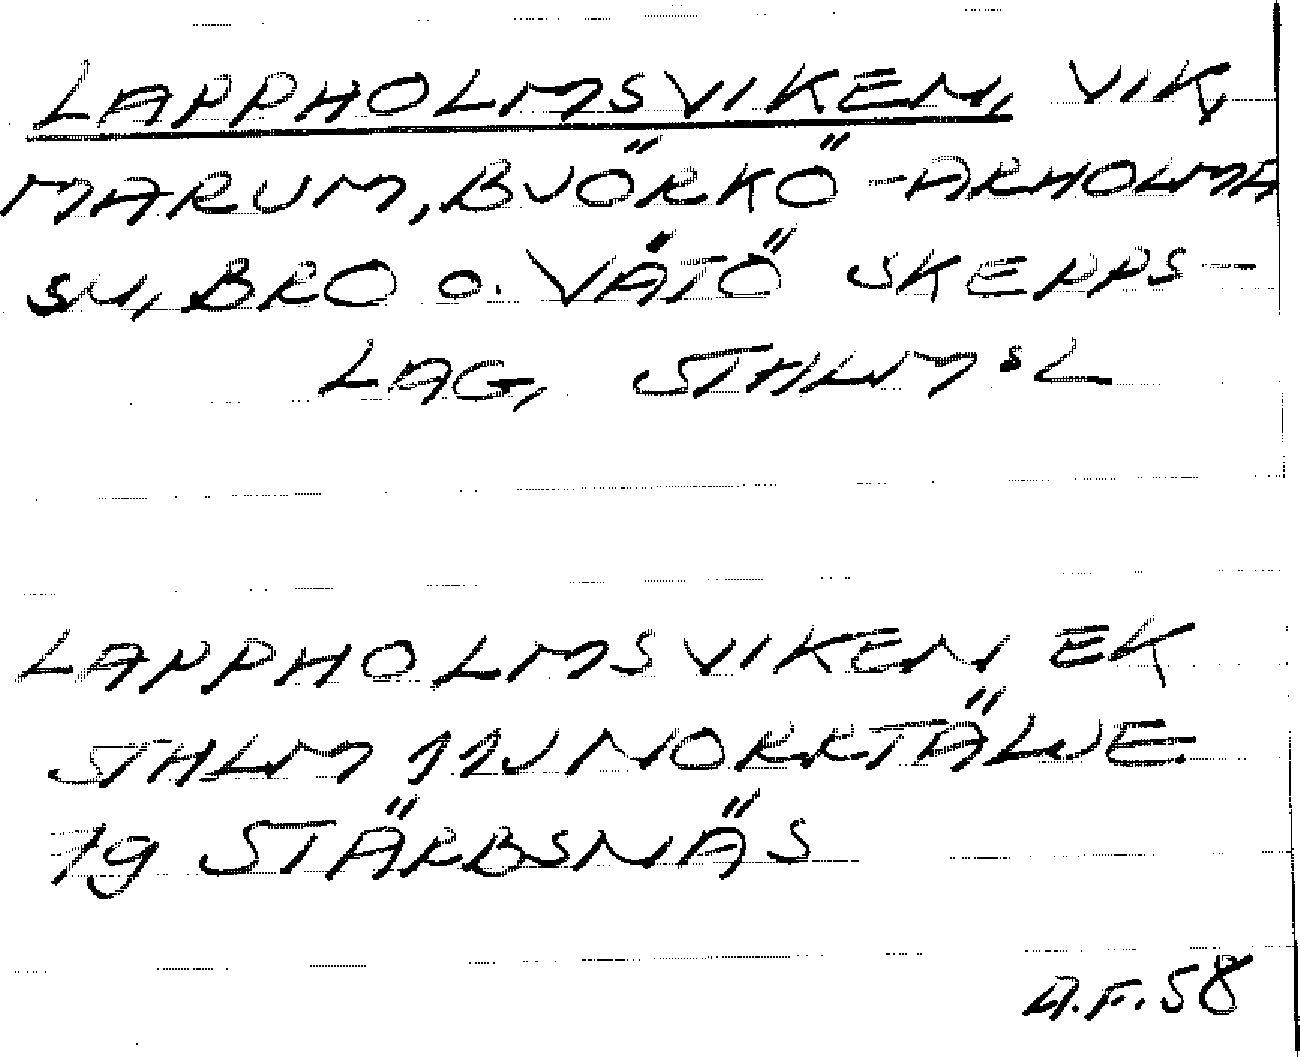 LAPPHOLMSVIKEN, VIK,
MARUM, BJÖRKÖ-ARHOLMA
SN, BRO O. VÄTÖ SKEPPS-
LAG, STHLMSL
LAPPHOLMSVIKEN EK
STHLM 11J NORRTÄLJE
19 STÄRBSNÄS
A.F.58